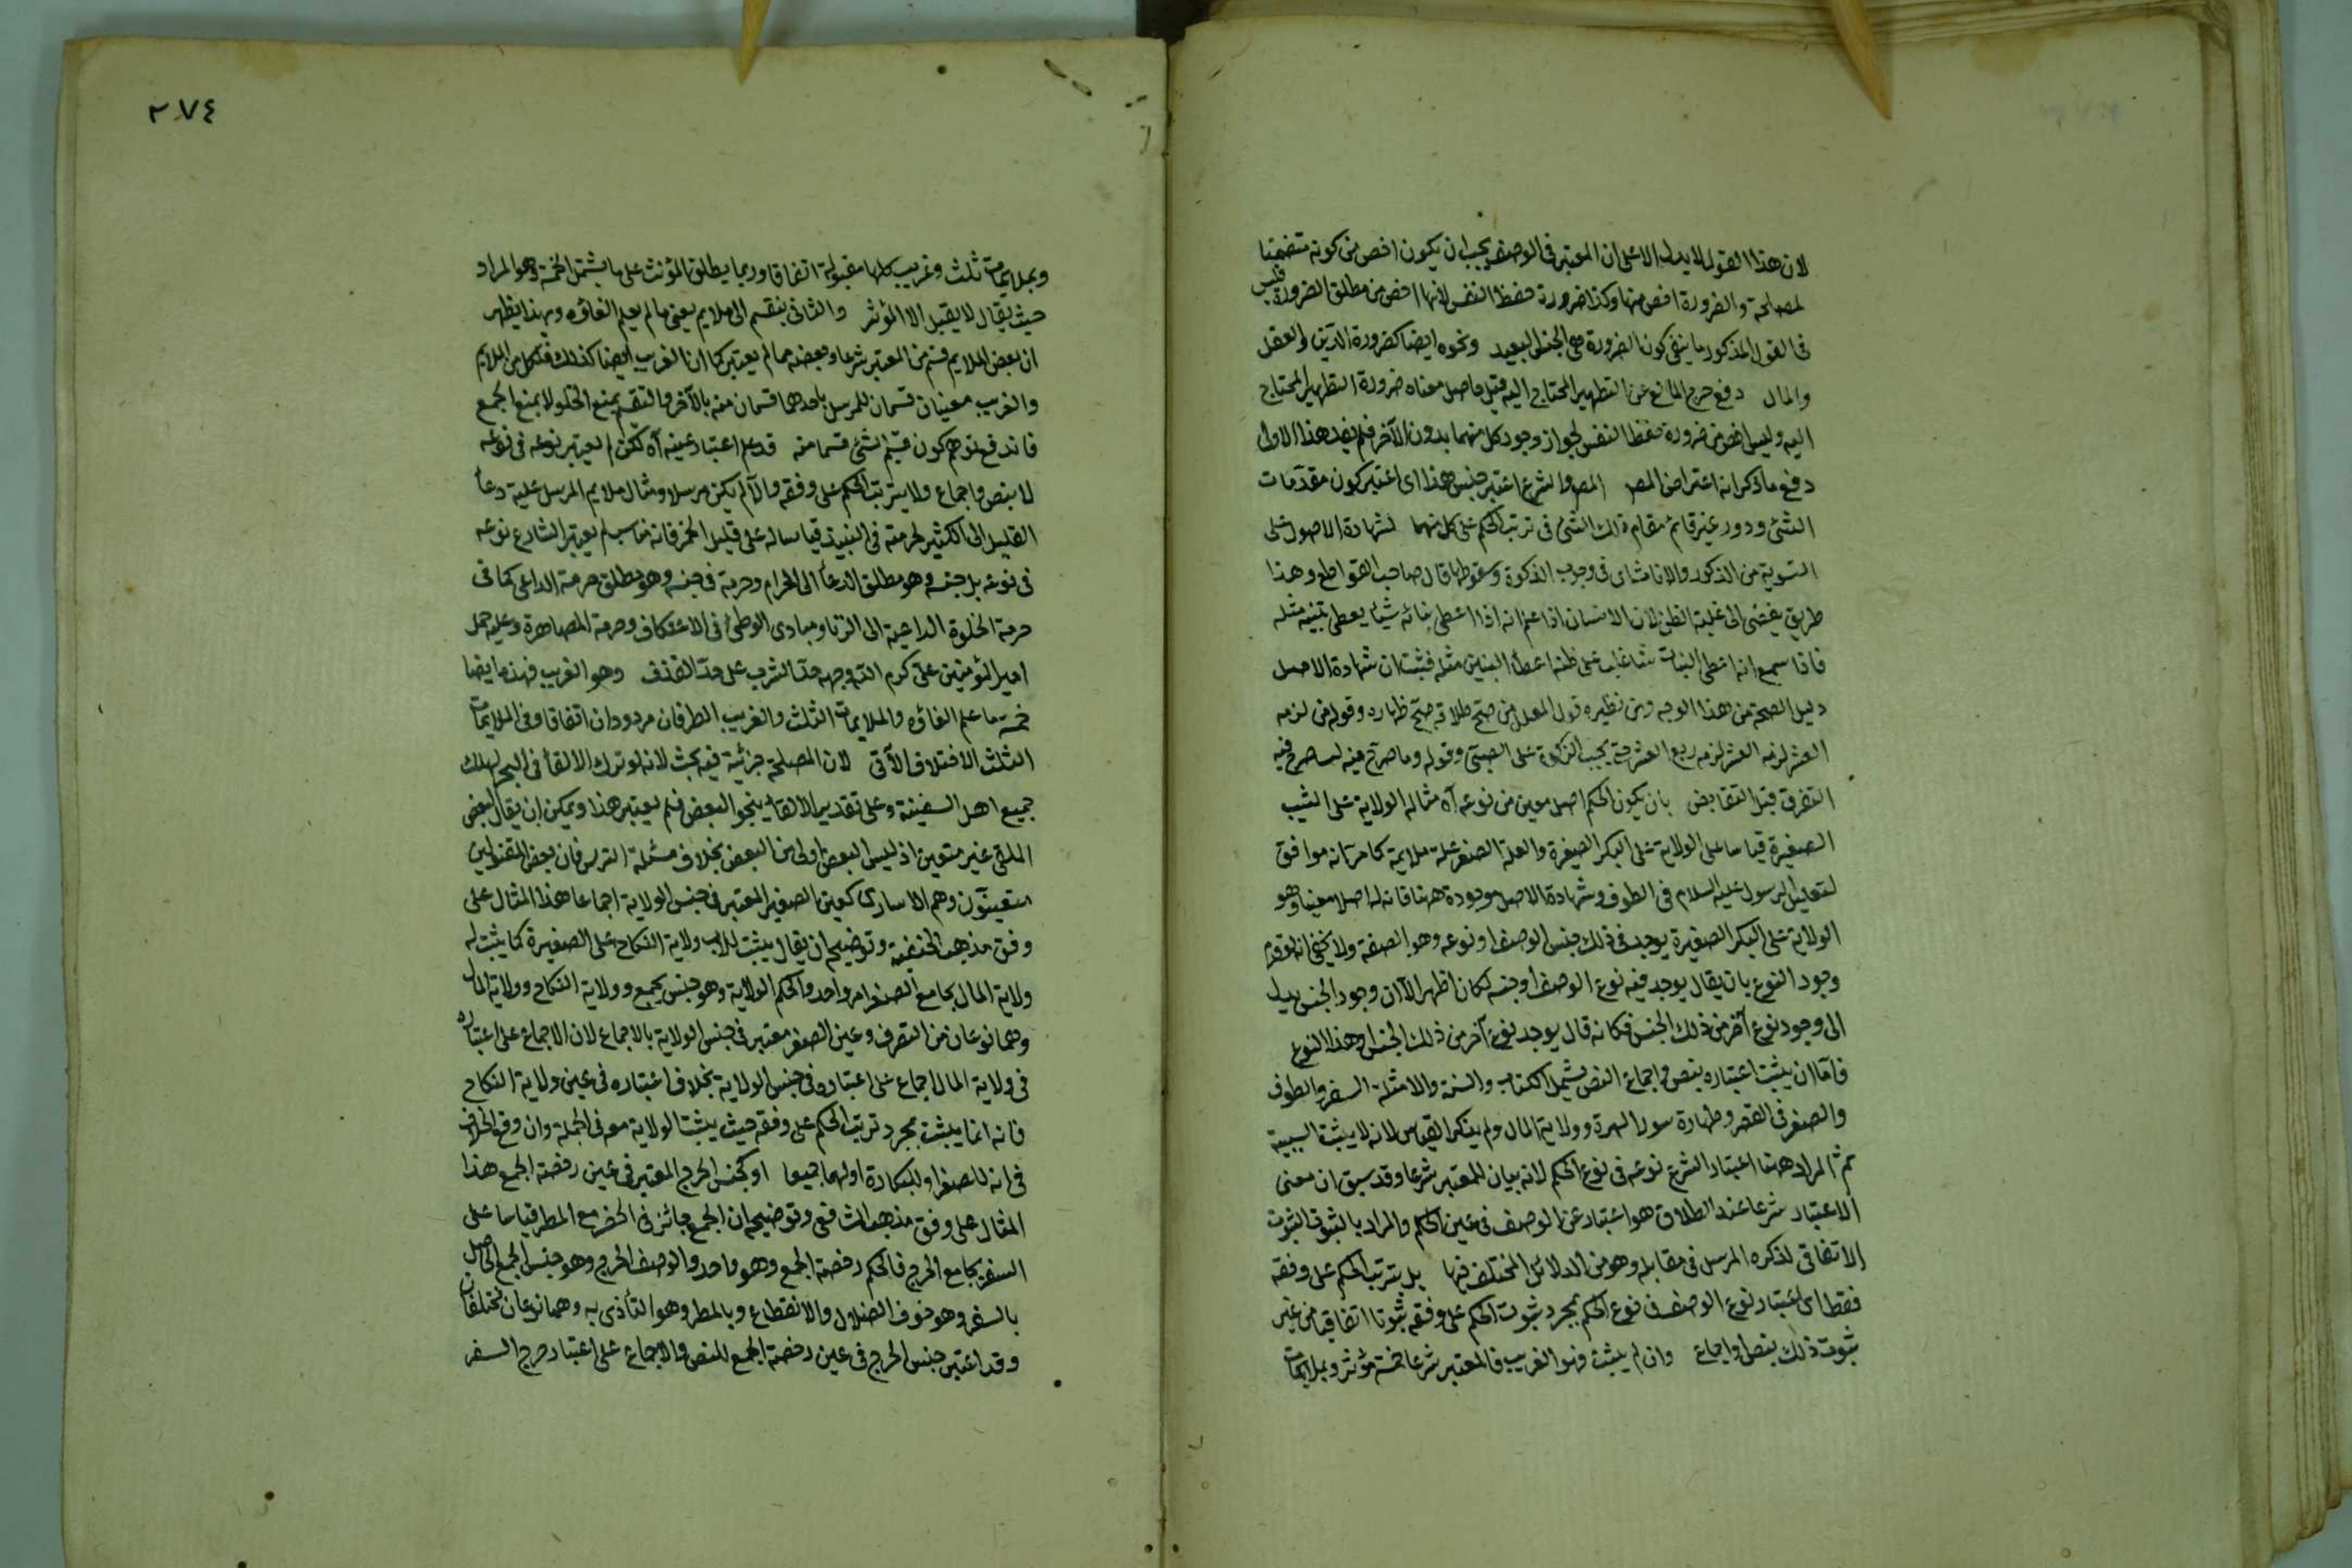 لان هذا القول لا يدل الا على ان المعتبر في الوصف يجب ان يكون اخص من كونه متضمنا
لمصلحة والضرورة اخص منها وكذا ضرورة حفظ النفس لانها اخص من مطلق الضرورة فليس
في القول المذكور ما ينفي كون الضرورة هي الجنس البعيد ونحوه ايضا كضرورة الدين والعقل
والمال دفع حرج المانع عن التطهير المحتاج اليه قيل حاصل معناه ضرورة التطهير المحتاج
اليه وليس اخص من ضرورة حفظ النفس لجواز وجود كل منهما بدون الآخر فلم يفد هذا الاول
دفع ما ذكر انه اعتراض المص المص والشرع اعتبر جنس هذا اي اعتبر كون مقدمات
الشئ ودور غير قائم مقام ذلك الشئ في ترتب الحكم على كل منهما لشهادة الاصول على
التسوية من الذكور والاناث اي في وجوب الذكوة وسقوطها قال صاحب القواطع وهذا
طريق يفضى الى غلبة الظن لان الانسان اذا علم انه اذا اعطى بناته شيئا يعطى بنيه مثله
فاذا سمع انه اعطى البنات شيئا غلب على ظنه اعطأ البنين مثله فثبت ان شهادة الاصل
دليل الصحة من هذا الوجه ومن نظيره قول المعلل من صح طلاقه صح ظهاره وقوله من لزمه
العشر لزمه العشر لزمه ربع العشر حتى يجب الزكوة على الصبي وقوله وما صرح فيه
التفرق قبل التقابض بان يكون الحكم اصل معين من نوعه آه مثاله الولاية على الثيب
الصغيرة قياسا على الولاية على البكر الصغيرة والعلة الصغر علة ملايمة كما مر انه موافق
لتعليل الرسول عليه السلام في الطوف وشهادة الاصل موجودة ههنا فانه له اصلا معينا وهو
الولاية على البكر الصغيرة يوجد في ذلك جنس الوصف او نوعه وهو الصفة ولا يخفى انه لو قدم
وجود النوع بان يقال يوجد فيه نوع الوصف او جنسه لكان اظهر الا ان وجود الجنس يدل
الى وجود نوع آخر من ذلك الجنس فكانه قال يوجد نوع آخر من ذلك الجنس او هذا النوع
فاما ان يثبت اعتباره بنص او اجماع النص يشمل الكتاب والسنة والامثلة السفر والطوف
والصغر في القصر وطهارة سور الهرة وولاية المال ولم يذكر القياس لانه لا يثبت السببية
ثم المراد ههنا اعتبار الشرع نوعه في نوع الحكم لانه بيان للمعتبر شرعا وقد سبق ان معنى
الاعتبار شرعا عند الطلاق هو اعتبار عين الوصف في عين الحكم والمراد بالثبوت الثبوت
الاتفاقي لذكره المرسل في مقابله وهو من الدلائل المختلف فيها بل يترتب الحكم على وفقه
فقط اي اعتبار نوع الوصف في نوع الحكم بمجرد ثبوت الحكم على وفقه ثبوتا اتفاقيا من غير
ثبوت ذلك بنص او اجماع وان لم يثبت فهو الغريب فالمعتبر شرعا خمسة مؤثر وبملايمات
٢٧٤
وبملايمات ثلث وغريب كلها مقبولة اتفاقا وربما يطلق المؤنث على ما يشمل الخمسة وهو المراد
حيث يقال لا يقبل الا المؤثر والثاني ينقسم الى ملايم يعني ما لم يعلم الغاؤه وبهذا يظهر
ان بعض الملايم قسم من المعتبر شرعا وبعضه مما لم يعتبر كما ان الغريب ايضا كذلك فلكل من الملايم
والغريب معنيان قسمان للمرسل باحدهما قسمان منه بالآخر والتقسيم يمنع الخلو لا يمنع الجمع
فاندفع توهم كون قسيم الشئ قسما منه قد علم اعتبار عينه آه لكن لم يعتبر نوعه في نوعه
لا بنص واجماع ولا يترتب الحكم على وفقه والا لم يكن مرسلا ومثال ملايم المرسل علية دعأ
القليل الى الكثير لحرمته في النبيذ قياسا له على قليل الخمر فانه مناسب لم يعتبر الشارع نوعه
في نوعه بل جنسه وهو مطلق الدعأ الى الحرام وحرمة في جنسه وهو مطلق حرمة الداعي كما في
حرمة الخلوة الداعية الى الزنا ومبادى الوطئ في الاعتكاف وحرمة المصاهرة وعليه حمل
امير المؤمنين على كرم الله وجهه حد الشرب على حد القذف وهو الغريب فهذه ايضا
خمسة ما علم الغاؤه والملايمات الثلث والغريب الطرفان مردودان اتفاقا وفي الملايمات
الثلث الاختلاف الآتي لان المصلحة جزئية فيه بحث لانه لو ترك الالقأ في البحر لهلك
جميع اهل السفينة وعلى تقدير الالقأ ينجو البعض فلم يعتبر هذا ويمكن ان يقال البعض
الملقى غير متعين اذ ليس البعض اولى من البعض بخلاف مسئلة الترس فان بعض المقتولين
متعينون وهم الاسارى كعين الصغر المعتبر في جنس الولاية اجماعا هذا المثال على
وفق مذهب الحنفية وتوضيحه ان يقال يثبت للاب ولاية النكاح على الصغيرة كما يثبت له
ولاية المال بجامع الصغر امر واحد والحكم الولاية وهو جنس يجمع وولاية النكاح وولاية المال
وهما نوعان من التصرف وعين الصغر معتبر في جنس الولاية بالاجماع لان الاجماع على اعتباره
في ولاية المال اجماع على اعتباره في جنس الولاية بخلاف اعتباره في عين ولاية النكاح
فانه انما يثبت بمجرد ترتب الحكم على وفقه حيث يثبت الولاية معه في الجملة وان وقع الخلاف
في انه للصغر او للبكارة او لهما جميعا او كجنس الحرج المعتبر في عين رخصة الجمع هذا
المثال على وفق مذهب الشافعي وتوضيحه ان الجمع جائز في الحضر مع المطر قياسا على
السفر بجامع الحرج فالحكم رخصة الجمع وهو واحد والوصف الحرج وهو جنس الجمع الحاصل
بالسفر وهو خوف الضلال والانقطاع وبالمطر وهو التأذى به وهما نوعان مختلفان
وقد اعتبر جنس الحرج في عين رخصة الجمع للنص والاجماع على اعتبار حرج السفر